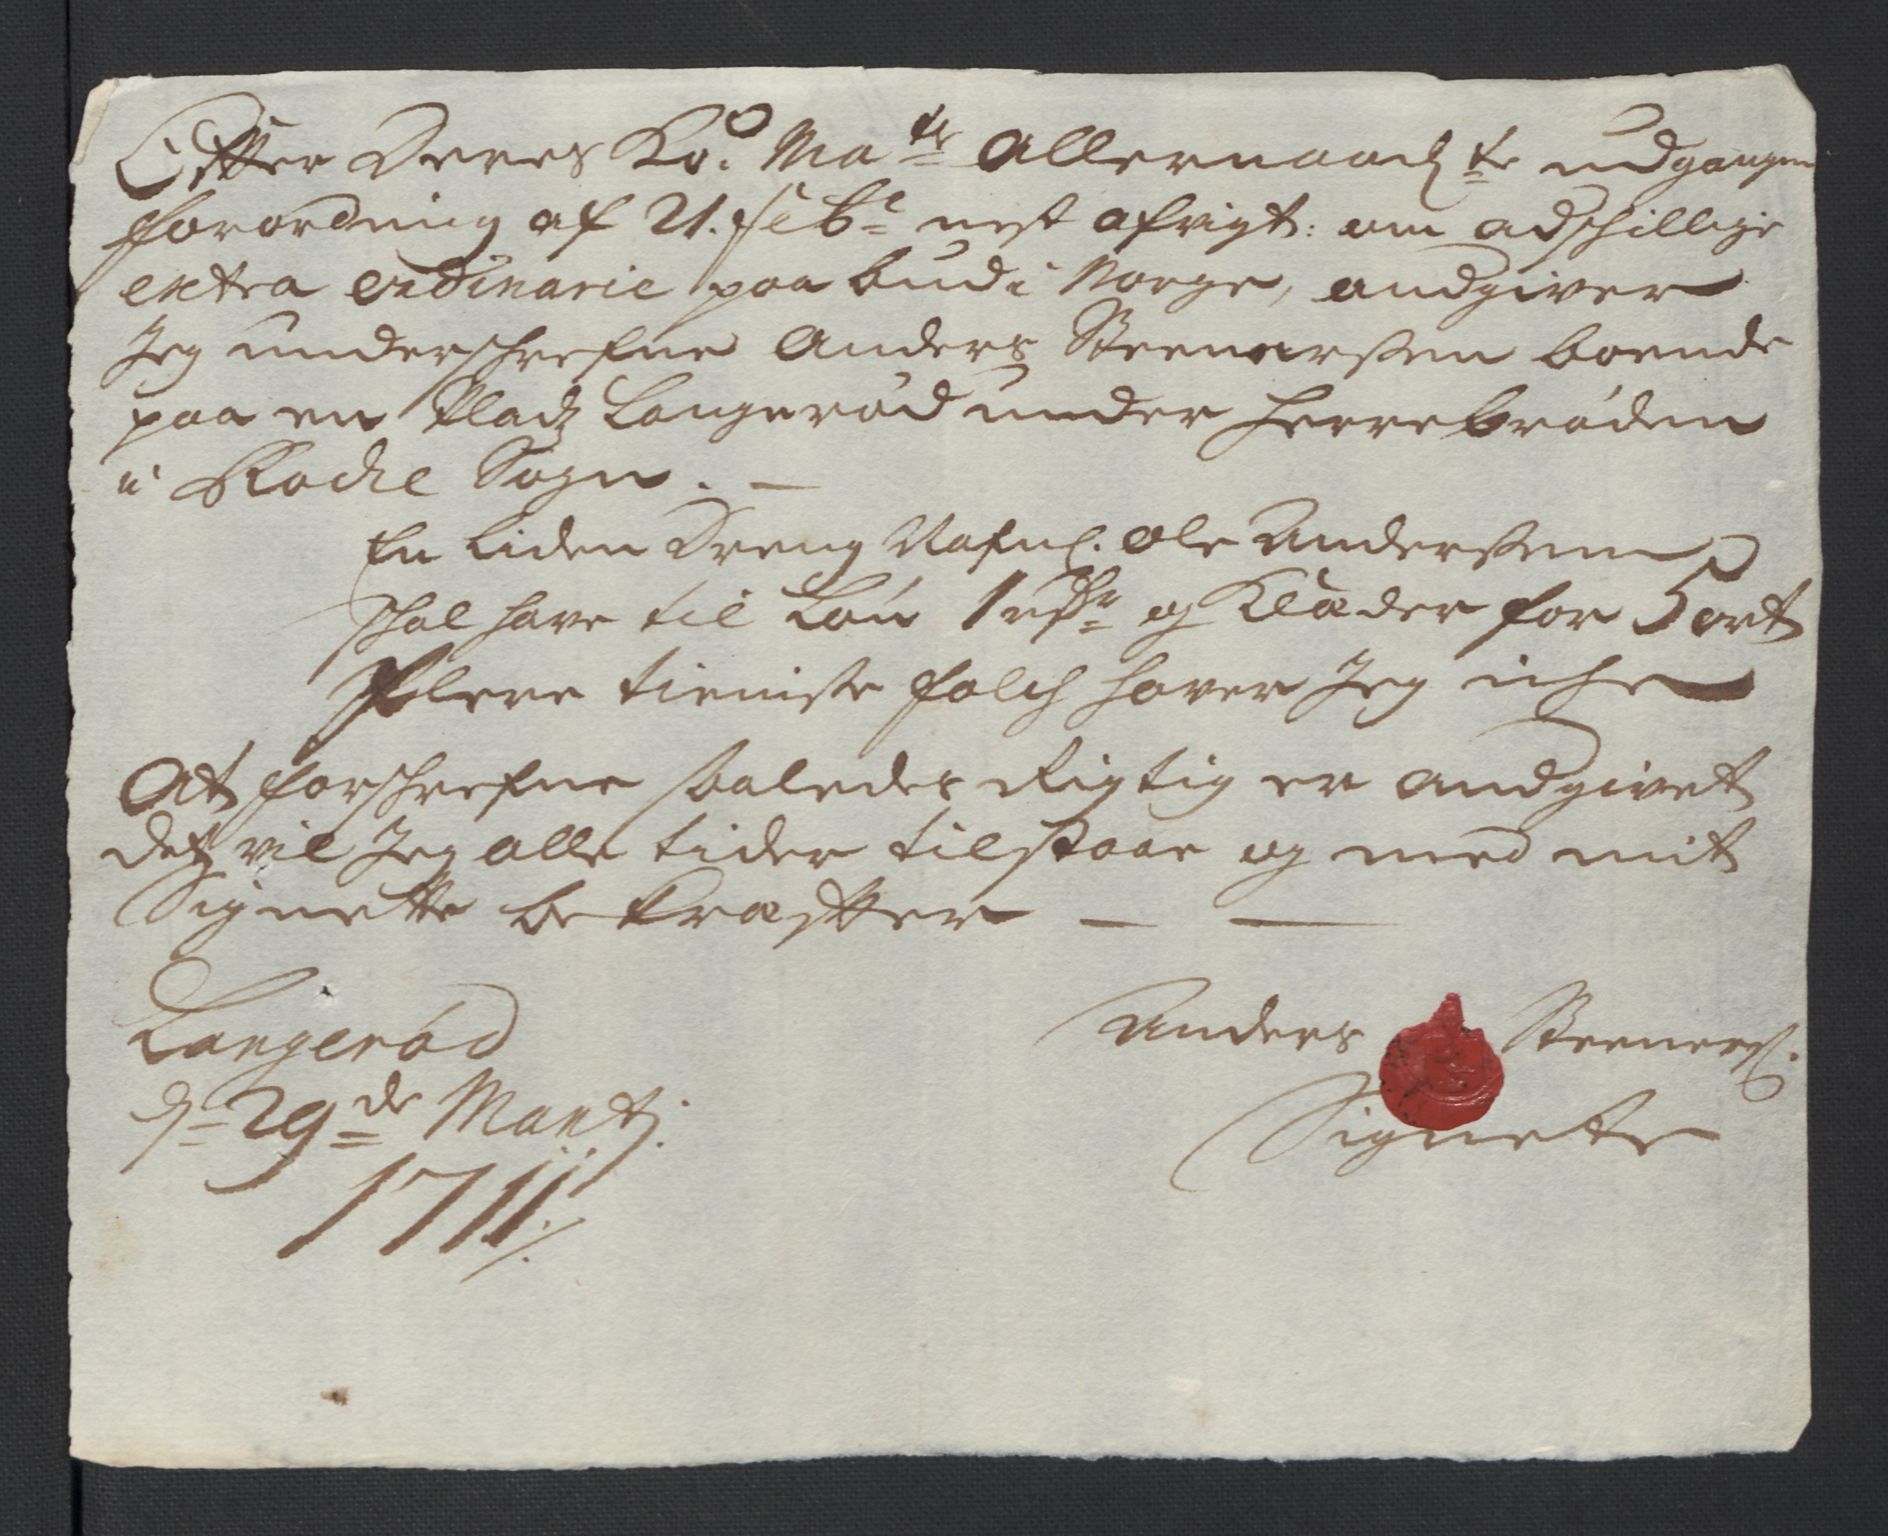 Efter Deres Ko: Ma^ts Allernaad^te udgangne
forordning af 21. feb^r nest afvigt: om adschillige
extra ordinarie paa bud i Norge, andgiver
Jeg underschrefne Anders Steenersen boende
paa en Pladz Langerød under Herrebrøden
i Rocke Sogn. —
En Liden Dreng Nafnl. Ole Anderssen
schal have til Løn 1 rdr og Klæder for 5 ort
Flere tieniste folch haver Jeg iche
At forschrefne saaledes Rigtig er andgivet
det vil Jeg alle tider tilstaae og med mit
Signette be kræffter — —
Langerød
d 29^de Marti.
1711 ./.
Anders Steeners.
Signete